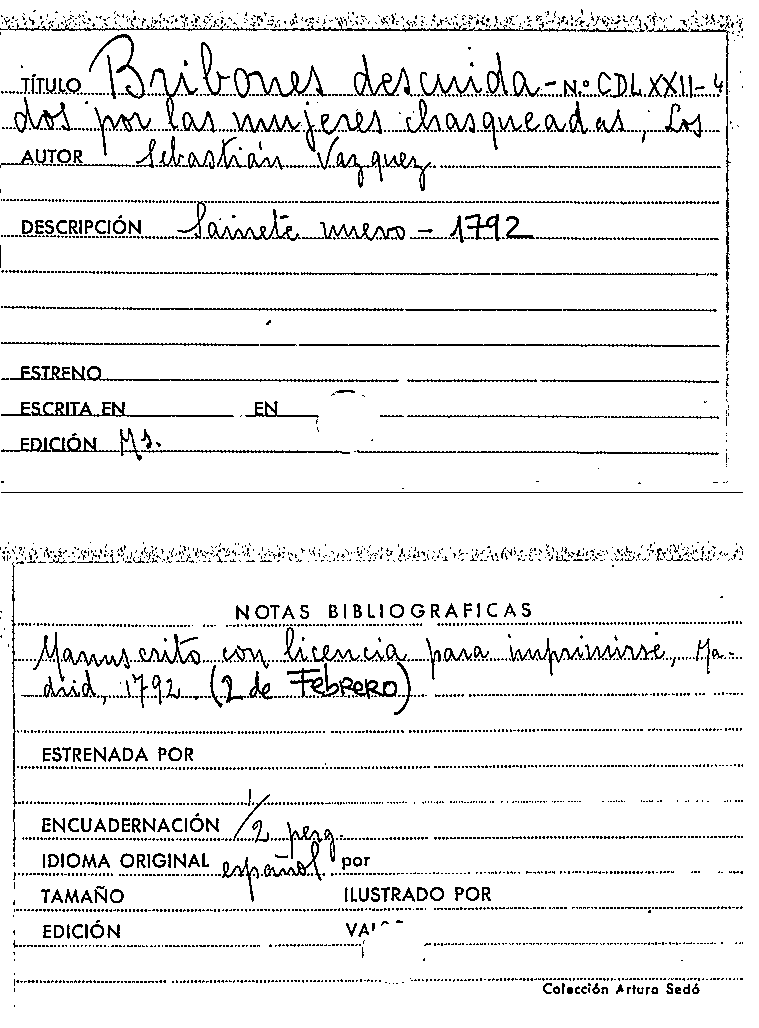 TÍTULO Bribones descuida- N.º CDLXXII-4
dos por las mujeres chasqueadas, Los
AUTOR Sebastián Vazquez
DESCRIPCIÓN Sainete nuevo - 1792
ESTRENO
ESCRITA EN EN
EDICIÓN Ms.
NOTAS BIBLIOGRAFICAS
Manuscrito con licencia para imprimirse, Ma-
drid, 1792 (2 de FebRERO)
ESTRENADA POR
ENCUADERNACIÓN 1/2 perg.
IDIOMA ORIGINAL español por
TAMAÑO ILUSTRADO POR
EDICIÓN
Colección Arturo Sedó